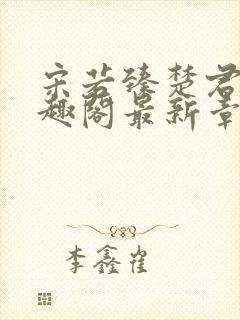 宋若臻楚君
趣阁最新章
李鑫崔